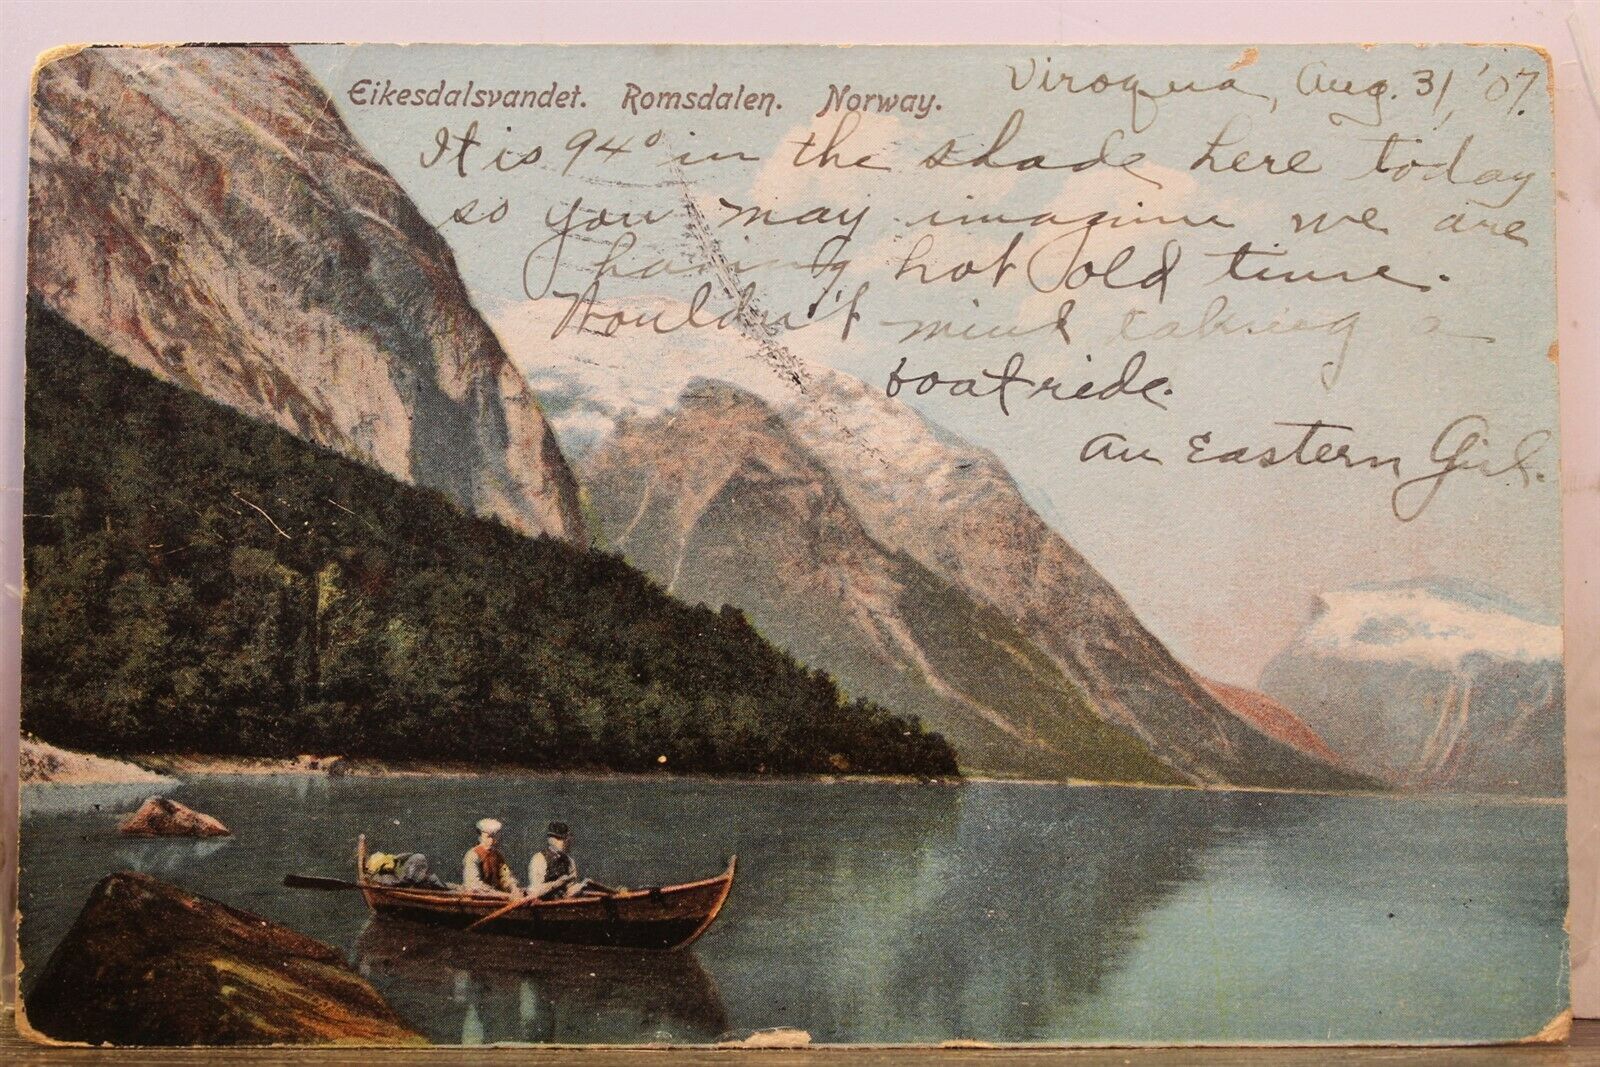 Eikesdalsvandet. Romsdalen. Norway.
Viroqua, Aug. 31, '07.
It is 94° in the shade here today
so you may imagine we are
having hot old time.
Wouldn't mind taking a
boat ride.
An Eastern Girl.